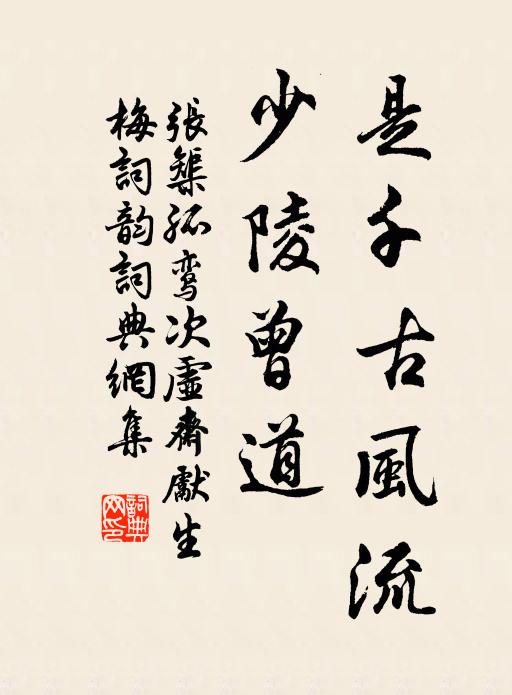 是千古風流
少陵曾道
張榘孤鸾次虛齋獻生
梅詞韵詞典網集
詞典
网印